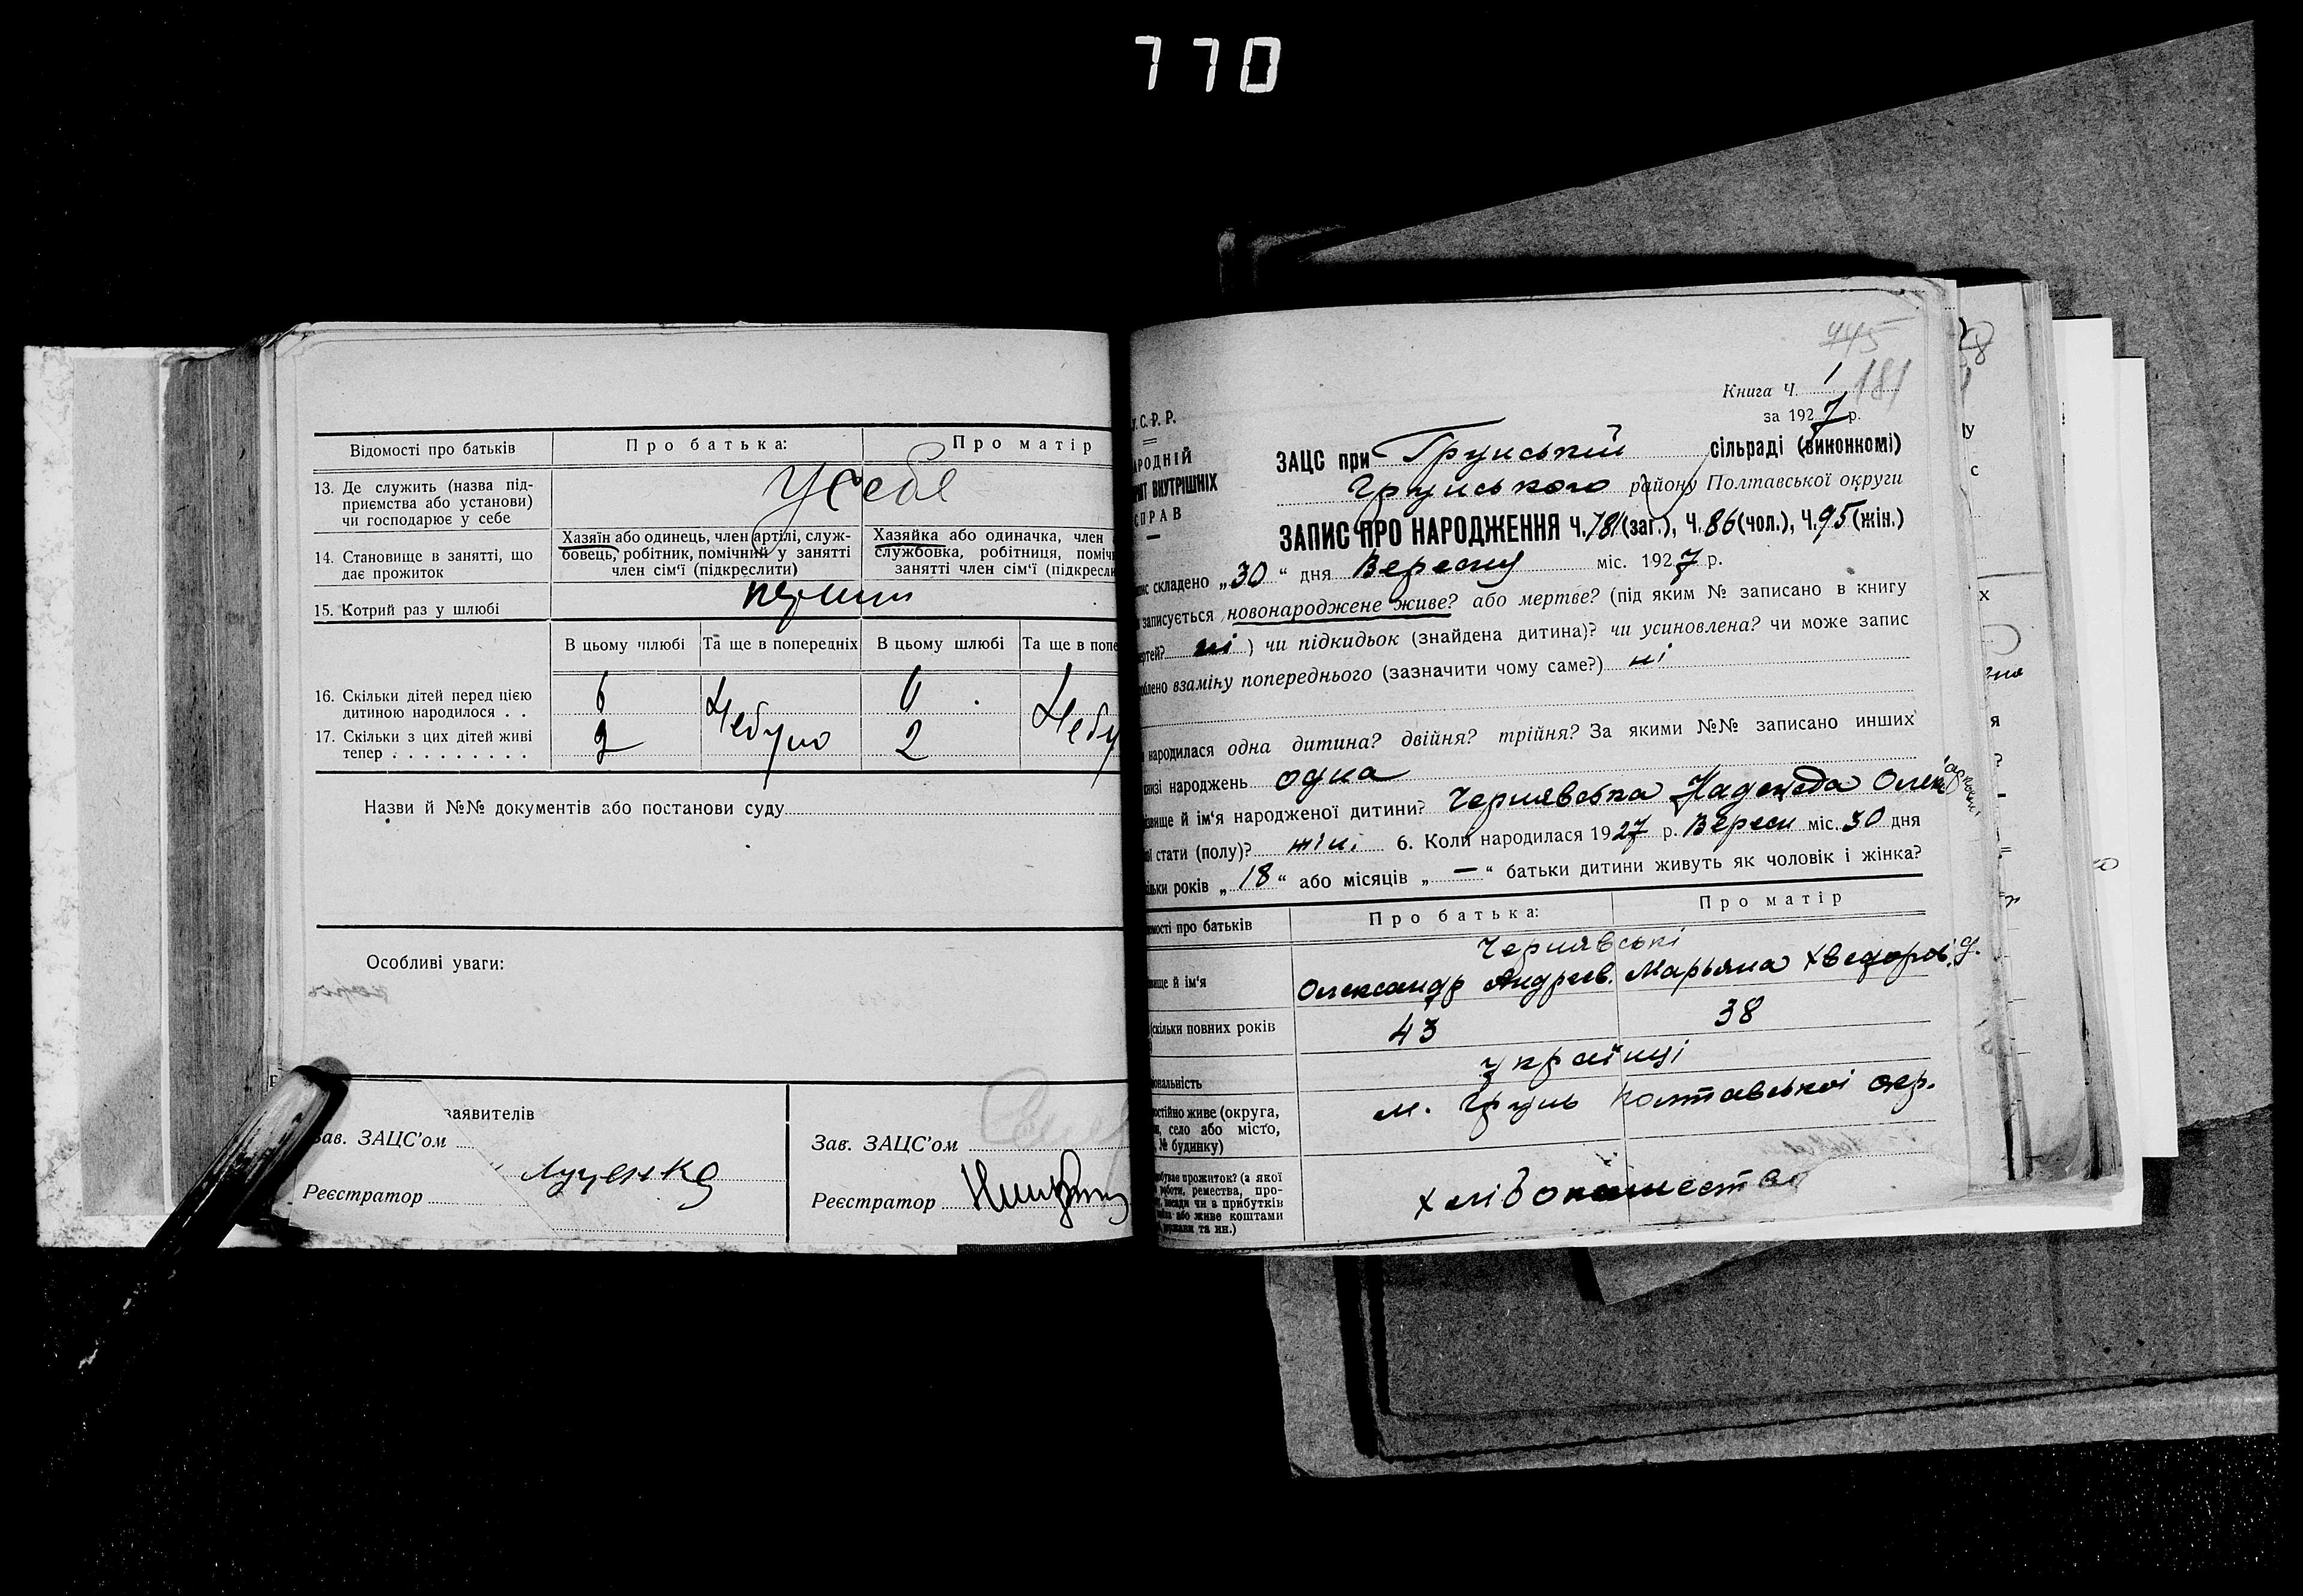 770
Відомості про батьків
Про батька:
Про матір
13. Де служить (назва під-
приємства або установи)
чи господарює у себе
У себе
14. Становище в занятті, що
дає прожиток
Хазяїн або одинець, член артілі, служ-
бовець, робітник, помічний у занятті
член сім'ї (підкреслити)
Хазяйка або одиначка, член
службовка, робітниця, поміч
занятті член сім'ї (підкресли
15. Котрий раз у шлюбі
В цьому шлюбі
Та ще в попередніх
В цьому шлюбі
Та ще в попе
16. Скільки дітей перед цією
дитиною народилося . .
6
Небуло
6
Небу
17. Скільки з цих дітей живі
тепер . . . . . . . . .
2
2
Назви й №№ документів або постанови суду
Особливі уваги:
заявителів
Зав. ЗАЦС'ом
Луценко
Реєстратор
Зав. ЗАЦС'ом
Реєстратор
445
Книга Ч. 1
181
за 1927 р.
У.С.Р.Р.
АРОДНІЙ
РІЯТ ВНУТРІШНІХ
СПРАВ
ЗАЦС при Грунській сільраді (виконкомі)
Грунського району Полтавської округи
ЗАПИС ПРО НАРОДЖЕННЯ Ч. 181 (заг.), Ч. 86 (чол.), Ч. 95 (жін.)
складено „30“ дня Вересня міс. 1927 р.
записується новонароджене живе? або мертве? (під яким № записано в книгу
ертей? ні ) чи підкидьок (знайдена дитина)? чи усиновлена? чи може запис
облено взаміну попереднього (зазначити чому саме?) ні
народилася одна дитина? двійня? трійня? За якими №№ записано инших
низі народжень одна
звище й ім'я народженої дитини? Чернявська Надежда Олександровн
стати (полу)? жін. 6. Коли народилася 1927 р. Вересн міс. 30 дня
ільки років „18“ або місяців „—“ батьки дитини живуть як чоловік і жінка?
мості про батьків
Про батька:
Про матір
Чернявські
вище й ім'я
Олександр Андреєв.
Марьяна Хведоров. д.
скільки повних років
43
38
іональність
українці
остійно живе (округа,
н, село або місто,
№ будинку)
м. Грунь Полтавської окр.
буває прожиток? (з якої
роботи, ремества, про-
посади чи в прибутків
або живе коштами
держави та ин.)
хлібопашество